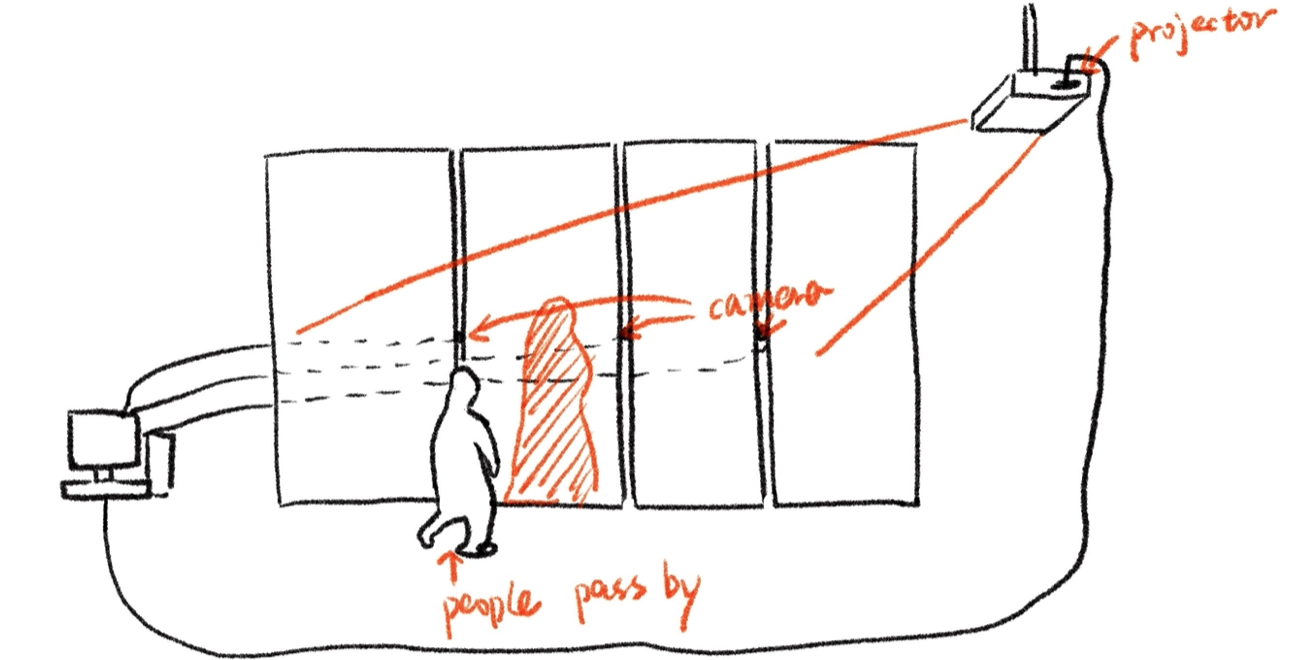 projector
camera
people pass by